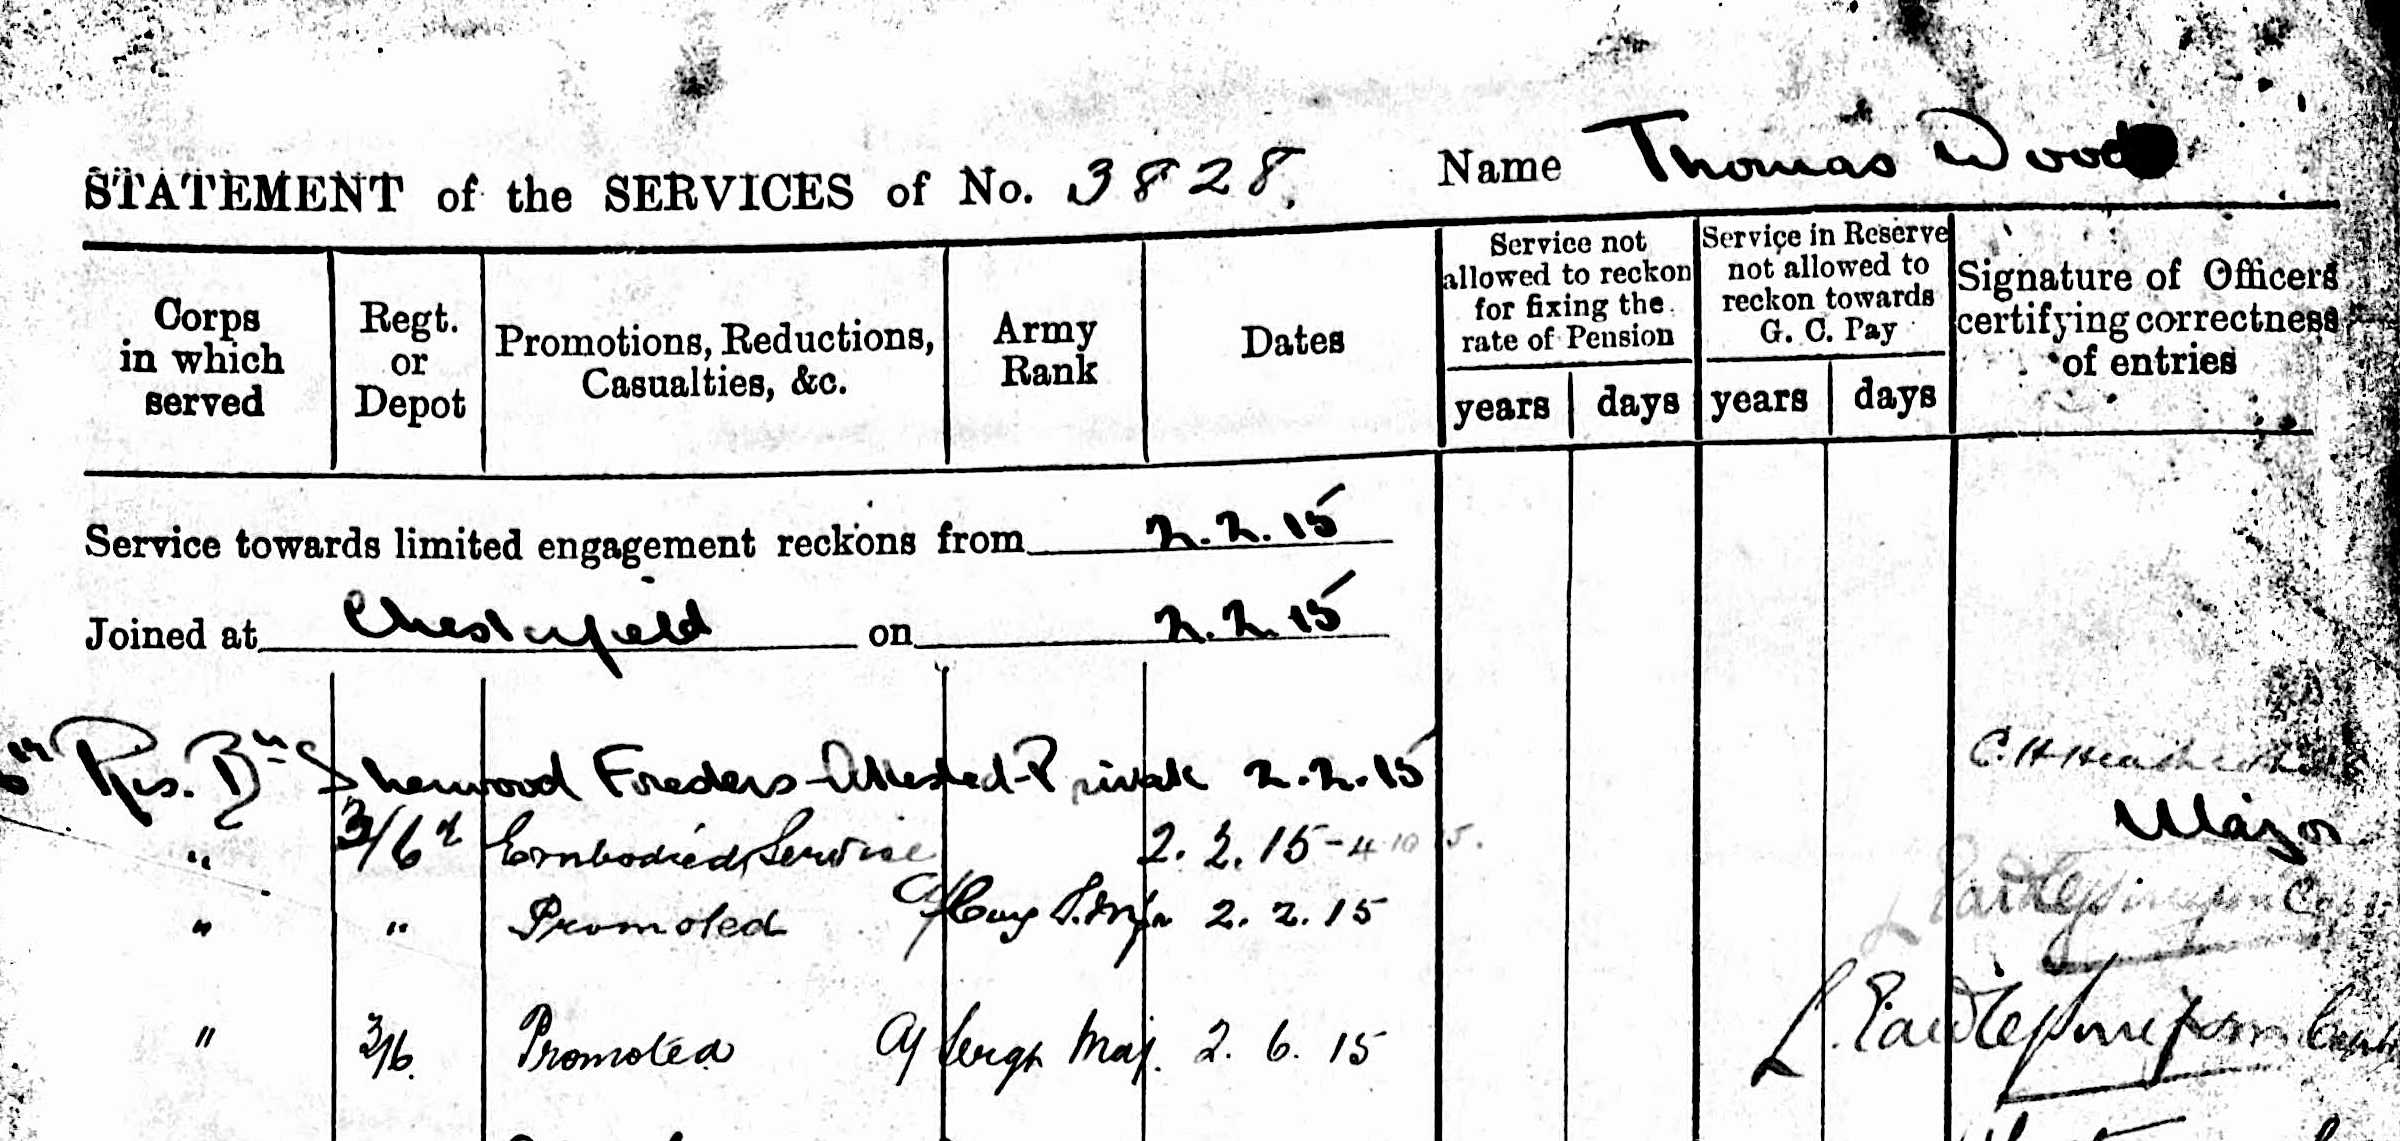 STATEMENT of the SERVICES of No. 3828. Name Thomas Wood
Corps in which served
Regt. or Depot
Promotions, Reductions, Casualties, &c.
Army Rank
Dates
Service not allowed to reckon for fixing the rate of Pension
years days
Service in Reserve not allowed to reckon towards G. C. Pay
years days
Signature of Officers certifying correctness of entries
Service towards limited engagement reckons from 2.2.15
Joined at Chesterfield on 2.2.15
Res. Bn Sherwood Foresters - Attested - Private 2.2.15 C. H.
Major
" 3/6th Embodied Service 2.2.15 - 4 10 15.
" " Promoted 2.2.15
" 3/6. Promoted Sergt Maj. 2.6.15 L.